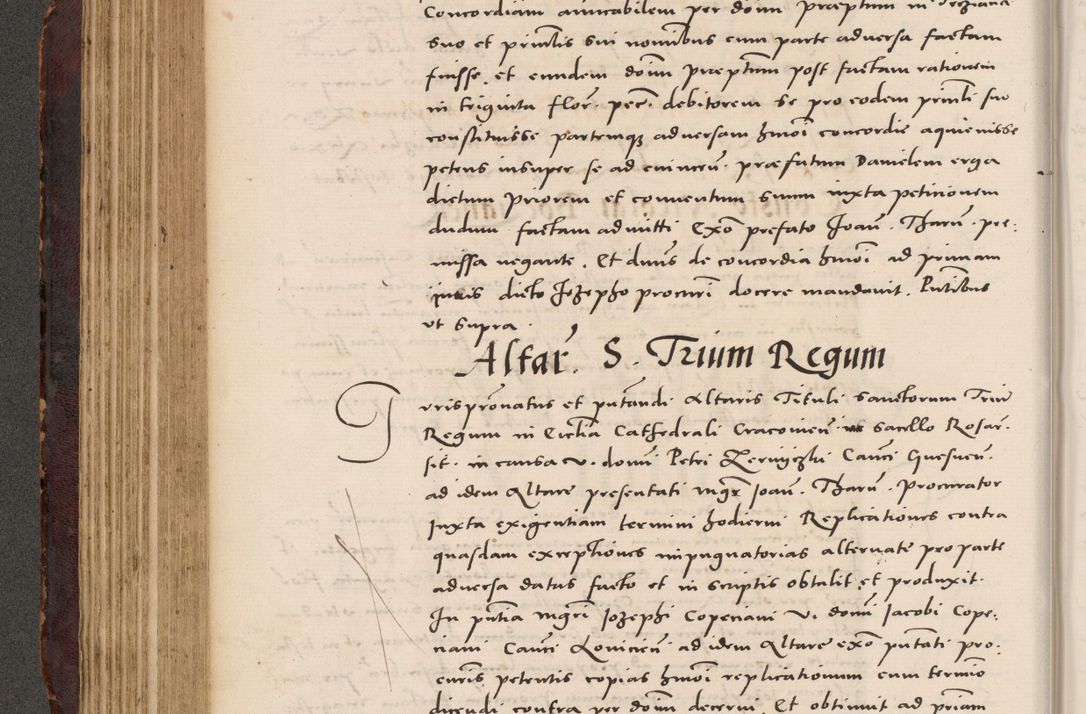 Concordiam amicabilem per dominum praeptum in
suo et primlis sui nomibus cum parte adversa factam
fuisse, et eundem doim praeptum post factam rationem
in triginta flor. pec. debitorem se pro eodem primli suo
constituisse partemque adversam hmoi concordie aquievisse
petens insuper se ad evincen. praefatum Danielem erga
dictum priorem et conventum suum iuxta petitionem
dudum factam admitti Exo prefato Joan. Tharn. pre:
missa negante. Et dnus de concordia hmoi ad primam
iuris dicto Jozepho procuri docere mandavit. Pntibus
ut supra.
Altar. S. Trium Regum
Jurispronatus et putandi Altaris Tituli Sanctorum Triu
Regum in Ecclia Cathedrali Cracovien in Sacello Rosar.
sit. in causa V. domi Petri Canci Gnesnen.
ad idem Altare presentati mgr Joan. Tharn. Procurator
Juxta exigentiam termini hodierni Replicationes contra
quasdam exceptiones impugnatorias alternate pro parte
adversa datas facto et in scriptis obtulit et produxit.
In pntia mgri Jozephi Copeciani V. domi Jacobi Cope:
ciani Canci Lovicien ad idem Altare exo putati pro:
curis, petentis copias hmoi replicationum cum termino
dicendi contra per doim decerni, Et obtinuit ad primam